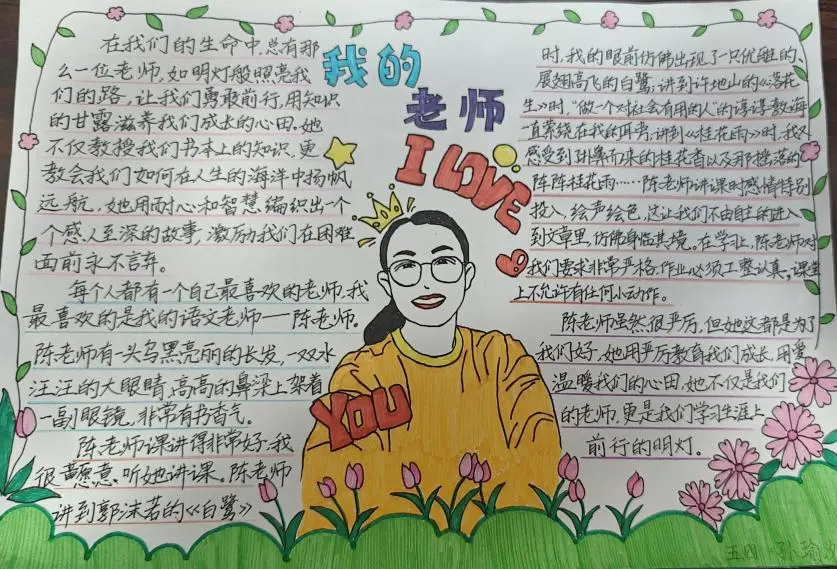 我的
老师
I LOVE
YOU
在我们的生命中,总有那
么一位老师,如明灯般照亮我
们的路,让我们勇敢前行,用知识
的甘露滋养我们成长的心田。她
不仅教授我们书本上的知识,更
教会我们如何在人生的海洋中扬帆
远航,她用耐心和智慧编织出一个
个感人至深的故事,激励我们在困难
面前永不言弃。
每个人都有一个自己最喜欢的老师,我
最喜欢的是我的语文老师——陈老师。
陈老师有一头乌黑亮丽的长发,一双水
汪汪的大眼睛,高高的鼻梁上架着
一副眼镜,非常有书香气。
陈老师课讲得非常好,我
很愿意听她讲课。陈老师
讲到郭沫若的《白鹭》
时,我的眼前仿佛出现了一只优雅的、
展翅高飞的白鹭;讲到许地山的《落花
生》时,“做一个对社会有用的人”的谆谆教诲
一直萦绕在我的耳旁,讲到《桂花雨》时,我又
感受到扑鼻而来的桂花香以及那摇落的
阵阵桂花雨……陈老师讲课时感情特别
投入,绘声绘色,这让我们不由自主的进入
到文章里,仿佛身临其境。在学业上,陈老师对
我们要求非常严格,作业必须工整认真,课堂
上不允许有任何小动作。
陈老师虽然很严厉,但她这都是为了
我们好,她用严厉教育我们成长,用爱
温暖我们的心田,她不仅是我们
的老师,更是我们学习生涯上
前行的明灯。
五四 孙瑜